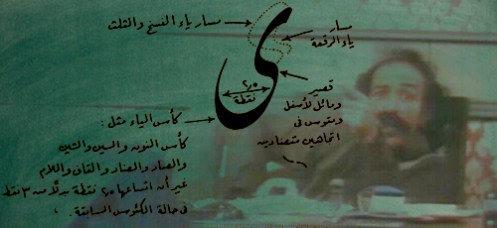 مسار ياء النسخ والثلث
مسار
ياء الرقعة
ى
٢٫٥
نقطة
قصير
ومائل لأسفل
ومقوس فى
اتجاهين متضادين
كأس الياء مثل :
كأس النون والسين والشين
والصاد والضاد والقاف واللام
غير أن اتساعها ٢٫٥ نقطة بدلاً من ٣ نقط
فى حالة الكئوس السابقة .